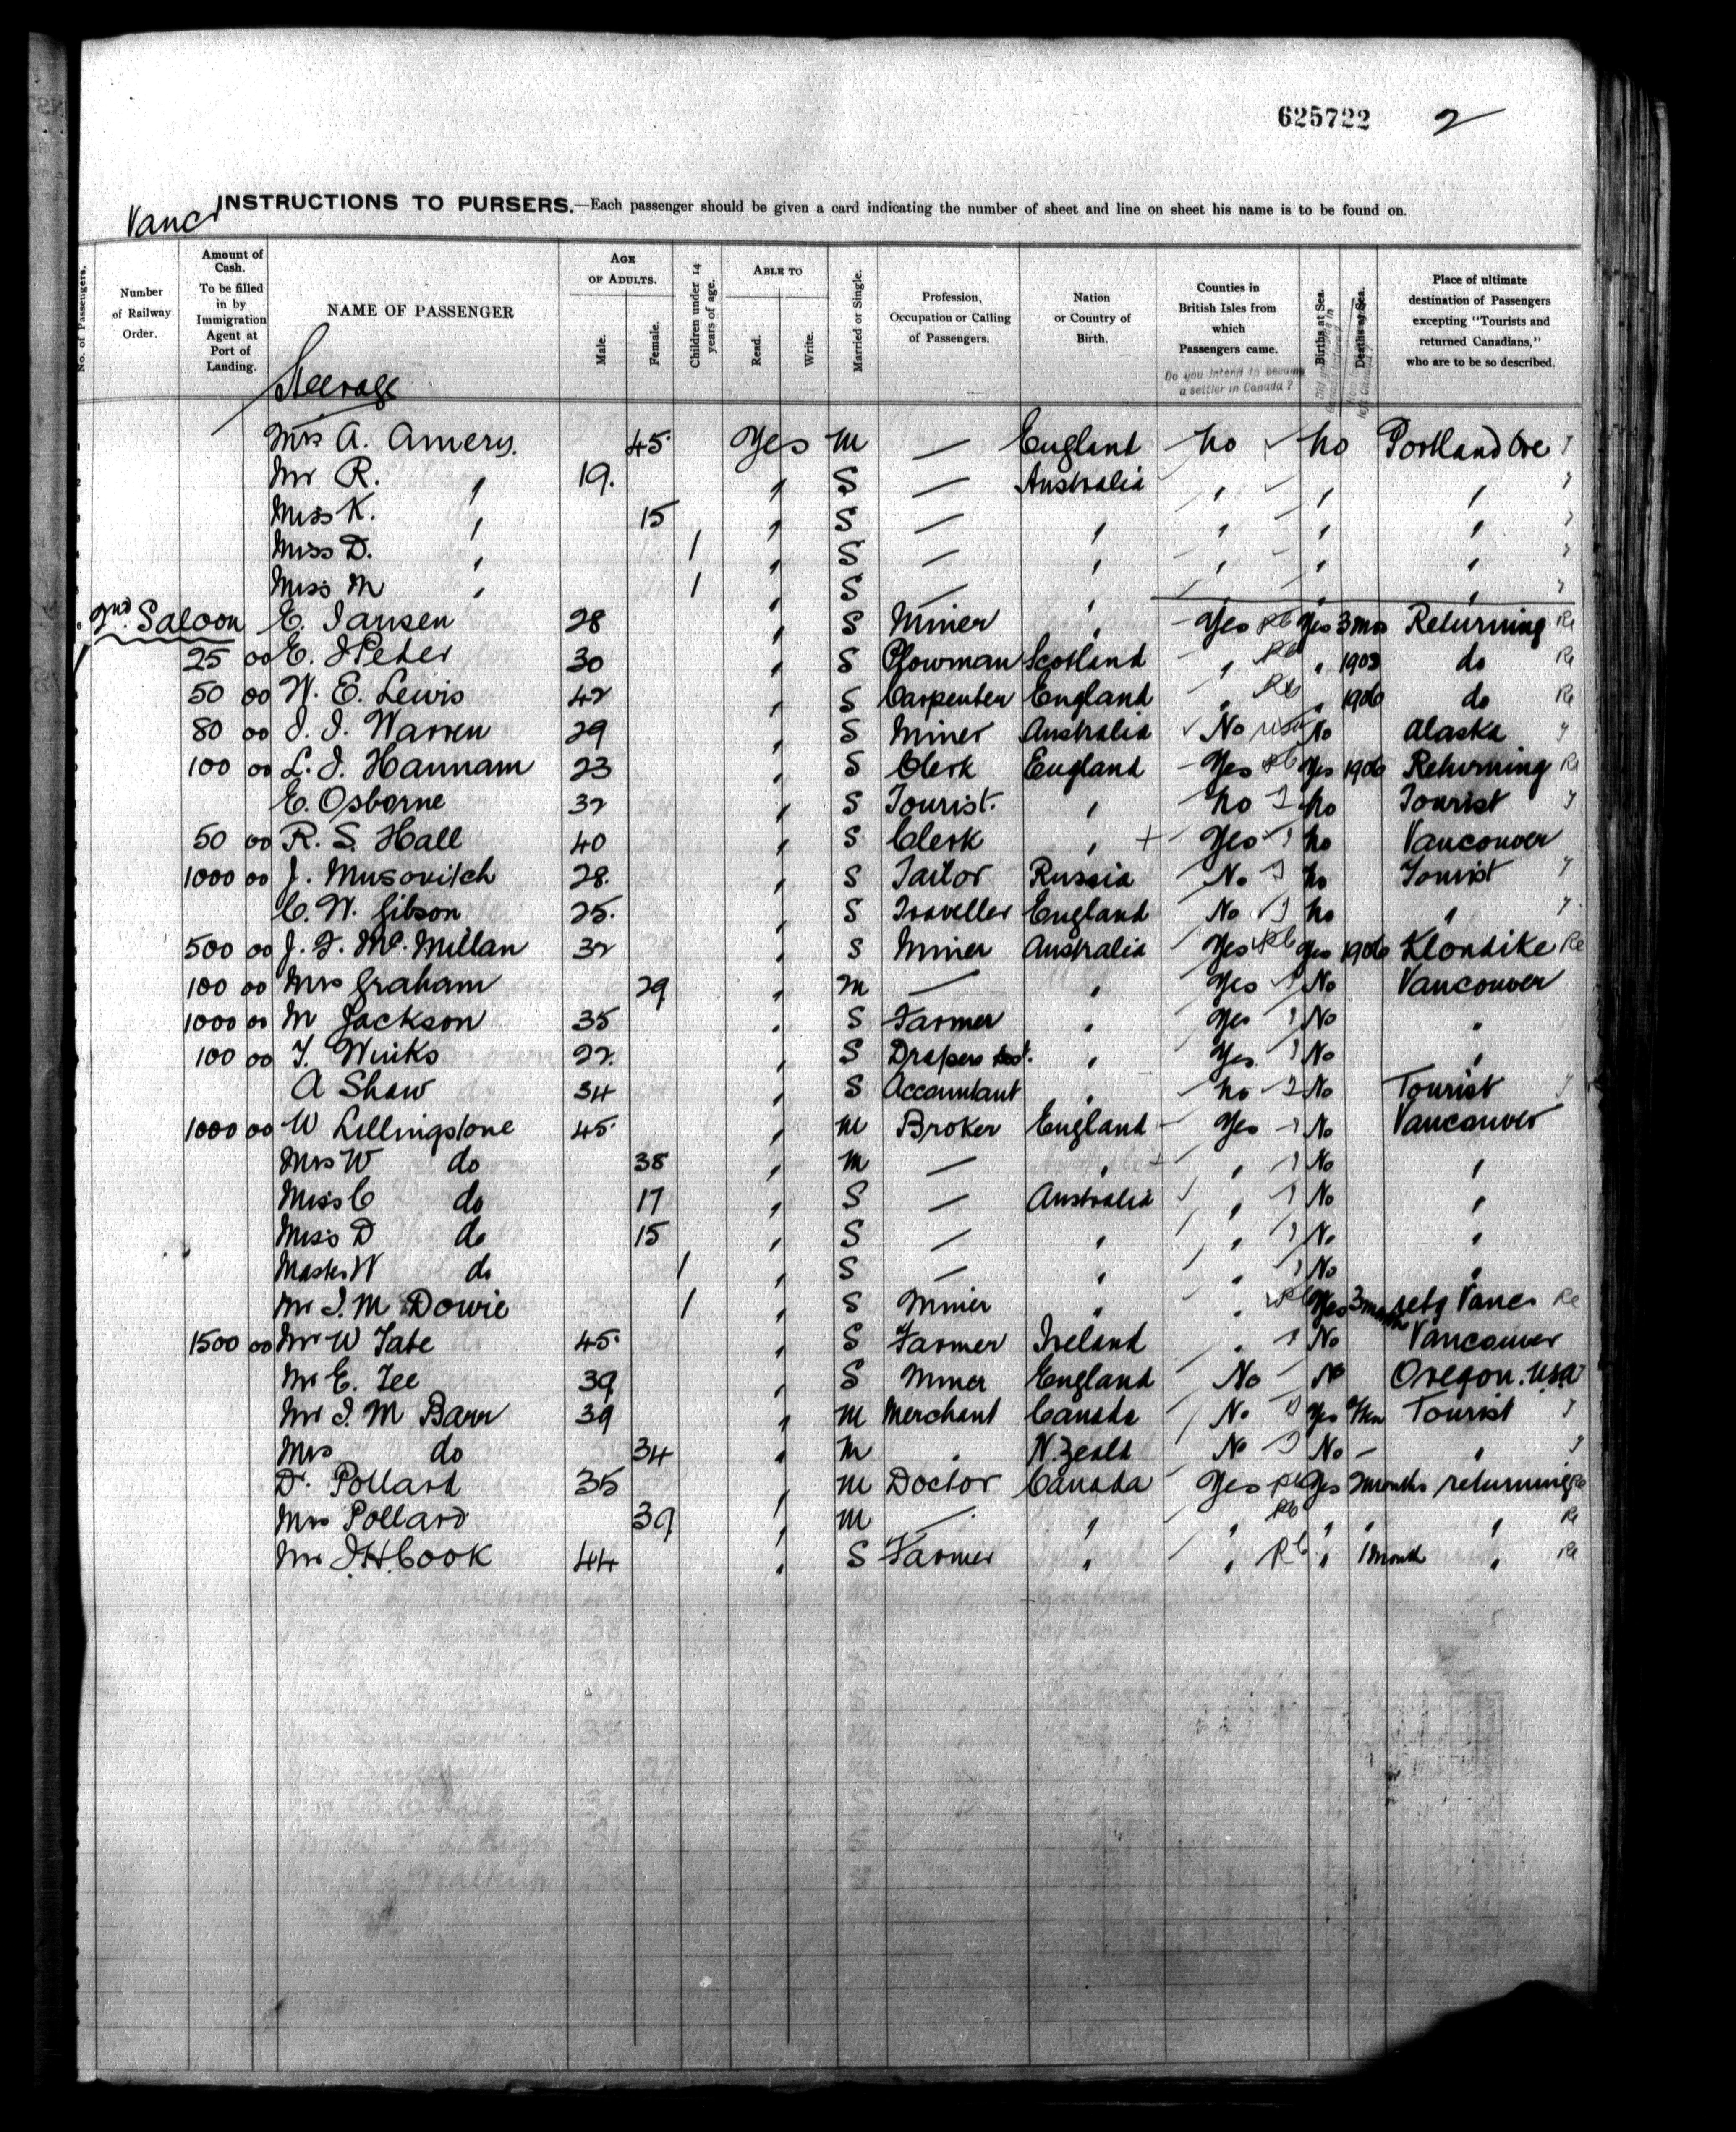 625722 2
Vancr INSTRUCTIONS TO PURSERS.—Each passenger should be given a card indicating the number of sheet and line on sheet his name is to be found on.
No. of Passengers.
Number of Railway Order.
Amount of Cash. To be filled in by Immigration Agent at Port of Landing.
NAME OF PASSENGER
Steerage
AGE OF ADULTS.
Male.
Female.
Children under 14 years of age.
ABLE TO
Read.
Write.
Married or Single.
Profession, Occupation or Calling of Passengers.
Nation or Country of Birth.
Counties in British Isles from which Passengers came.
Do you intend to become a settler in Canada?
Births at Sea.
Deaths at Sea.
Place of ultimate destination of Passengers excepting "Tourists and returned Canadians," who are to be so described.
Mrs A. Amery. 45 Yes M — England No No Portland Ore
Mr R. " 19. " S — Australia " " "
Miss K. " 15 " S — " " " "
Miss D. " 1 " S — " " " "
Miss M " 1 " S — " " " "
2nd Saloon E. Jansen 28 " S Miner " Yes Re Yes 3 mos Returning Re
25 00 E. J Peter 30 " S Plowman Scotland " Re " 1903 do Re
50 00 W. E. Lewis 42 " S Carpenter England " Re " 1906 do Re
80 00 J. J. Warren 29 " S Miner Australia No USA No Alaska
100 00 L. J. Hannam 23 " S Clerk England Yes Re Yes 1906 Returning Re
E. Osborne 32 " S Tourist. " No No Tourist
50 00 R. S. Hall 40 " S Clerk " + Yes No Vancouver
1000 00 J. Musovitch 28. " S Tailor Russia No No Tourist
C. W. Gibson 25. " S Traveller England No No "
500 00 J. F. McMillan 32 " S Miner Australia Yes Re Yes 1906 Klondike Re
100 00 Mrs Graham 29 " M — " Yes No Vancouver
1000 00 M Jackson 35 " S Farmer " Yes No "
100 00 T. Winks 22. " S Drapers " Yes. No "
A Shaw 34 " S Accountant " No No Tourist
1000 00 W Lillingstone 45. " M Broker England Yes No Vancouver
Mrs W do 38 " M — " " No "
Miss C do 17 " S — Australia " No "
Miss D do 15 " S — " " No "
Master W do 1 " S — " " No "
Mr J. M Dowie 1 " S Miner " " Yes 3 months retg Vancr Re
1500 00 Mr W Tate 45. " S Farmer Ireland " No Vancouver
Mr E. Tee 39 " S Miner England No No Oregon. USA
Mr J. M Barr 39 " M Merchant Canada No Yes Tourist
Mrs do 34 " M " N. Zeald No No — "
Dr. Pollard 35 " M Doctor Canada Yes Re Yes 2 months returning Re
Mrs Pollard 39 " M — " " Re " " " Re
Mr J. H. Cook 44 " S Farmer " " Re " 1 month " Re